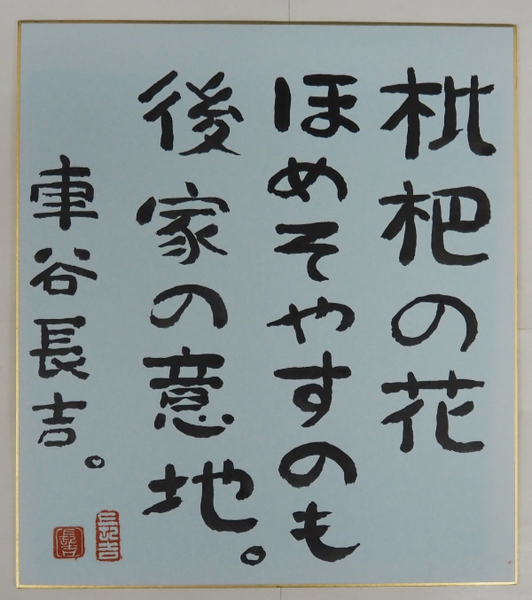 枇杷の花
ほめそやすのも
後家の意地。
車谷長吉。
長吉
長吉